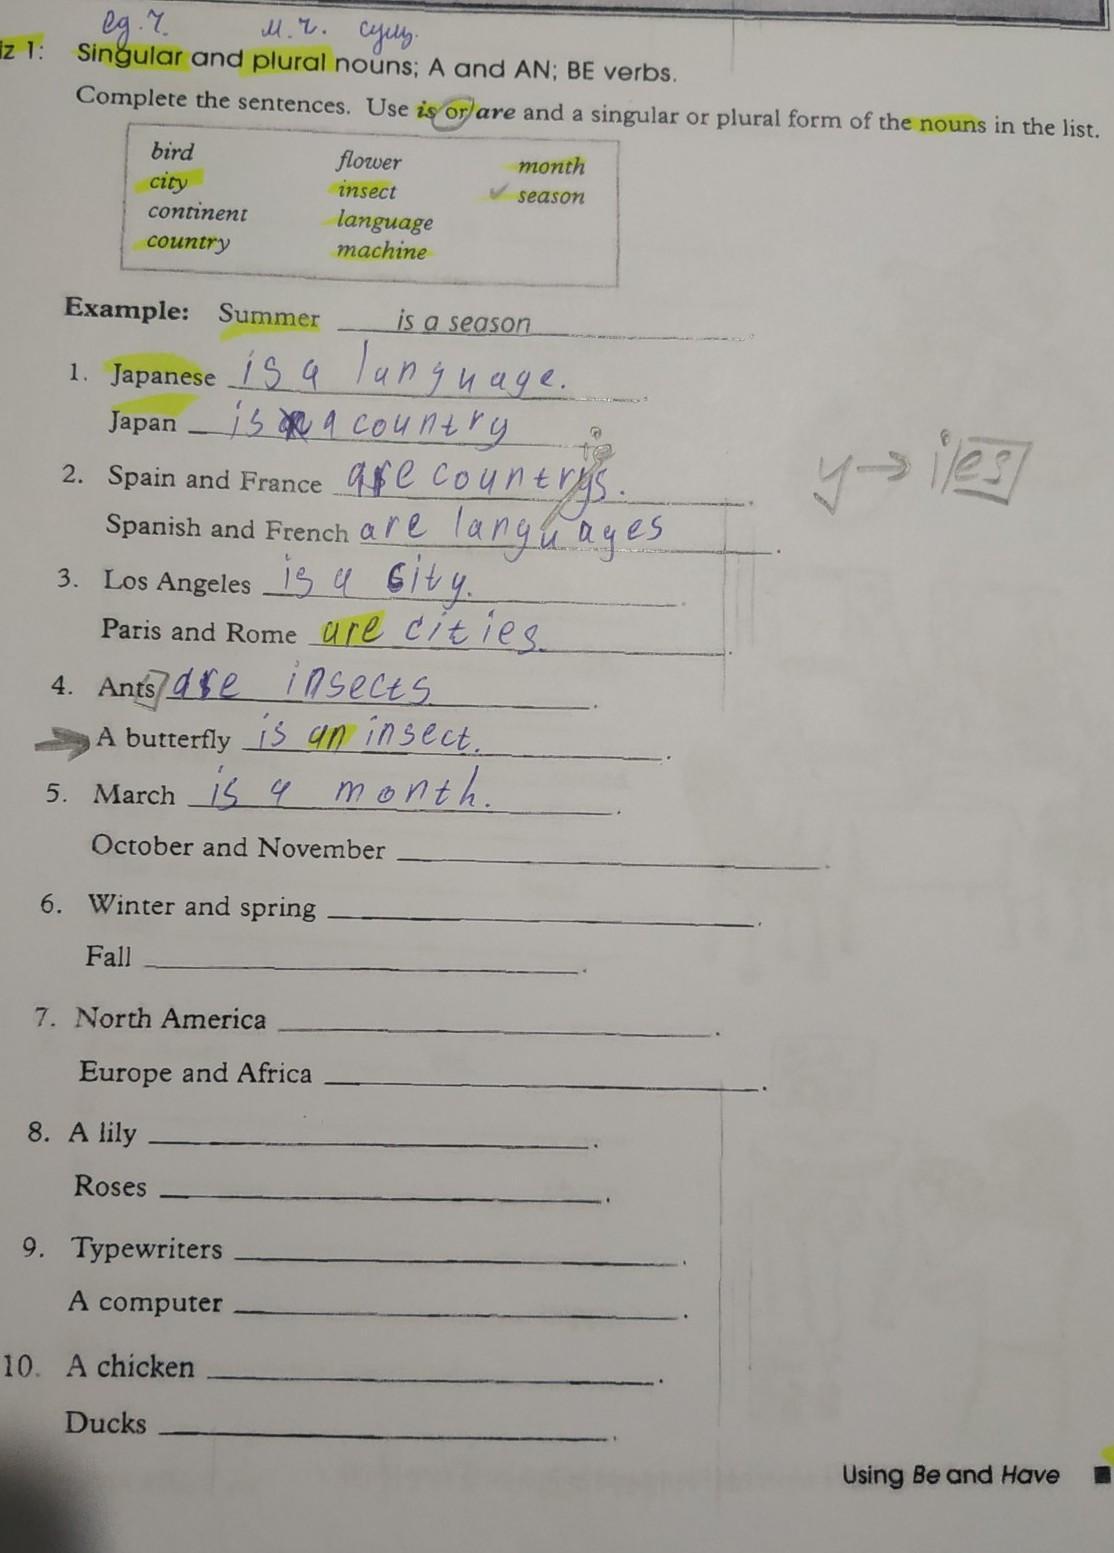 ед.ч. м.ч. сущ.
iz 1: Singular and plural nouns; A and AN; BE verbs.
Complete the sentences. Use is or are and a singular or plural form of the nouns in the list.
bird flower month
city insect ✓ season
continent language
country machine
Example: Summer is a season.
1. Japanese is a language.
Japan is a country
2. Spain and France are countrys. ie
y → ies
Spanish and French are languages.
3. Los Angeles is a city.
Paris and Rome are cities.
4. Ants are insects.
A butterfly is an insect.
5. March is a month.
October and November ____.
6. Winter and spring ____.
Fall ____.
7. North America ____.
Europe and Africa ____.
8. A lily ____.
Roses ____.
9. Typewriters ____.
A computer ____.
10. A chicken ____.
Ducks ____.
Using Be and Have